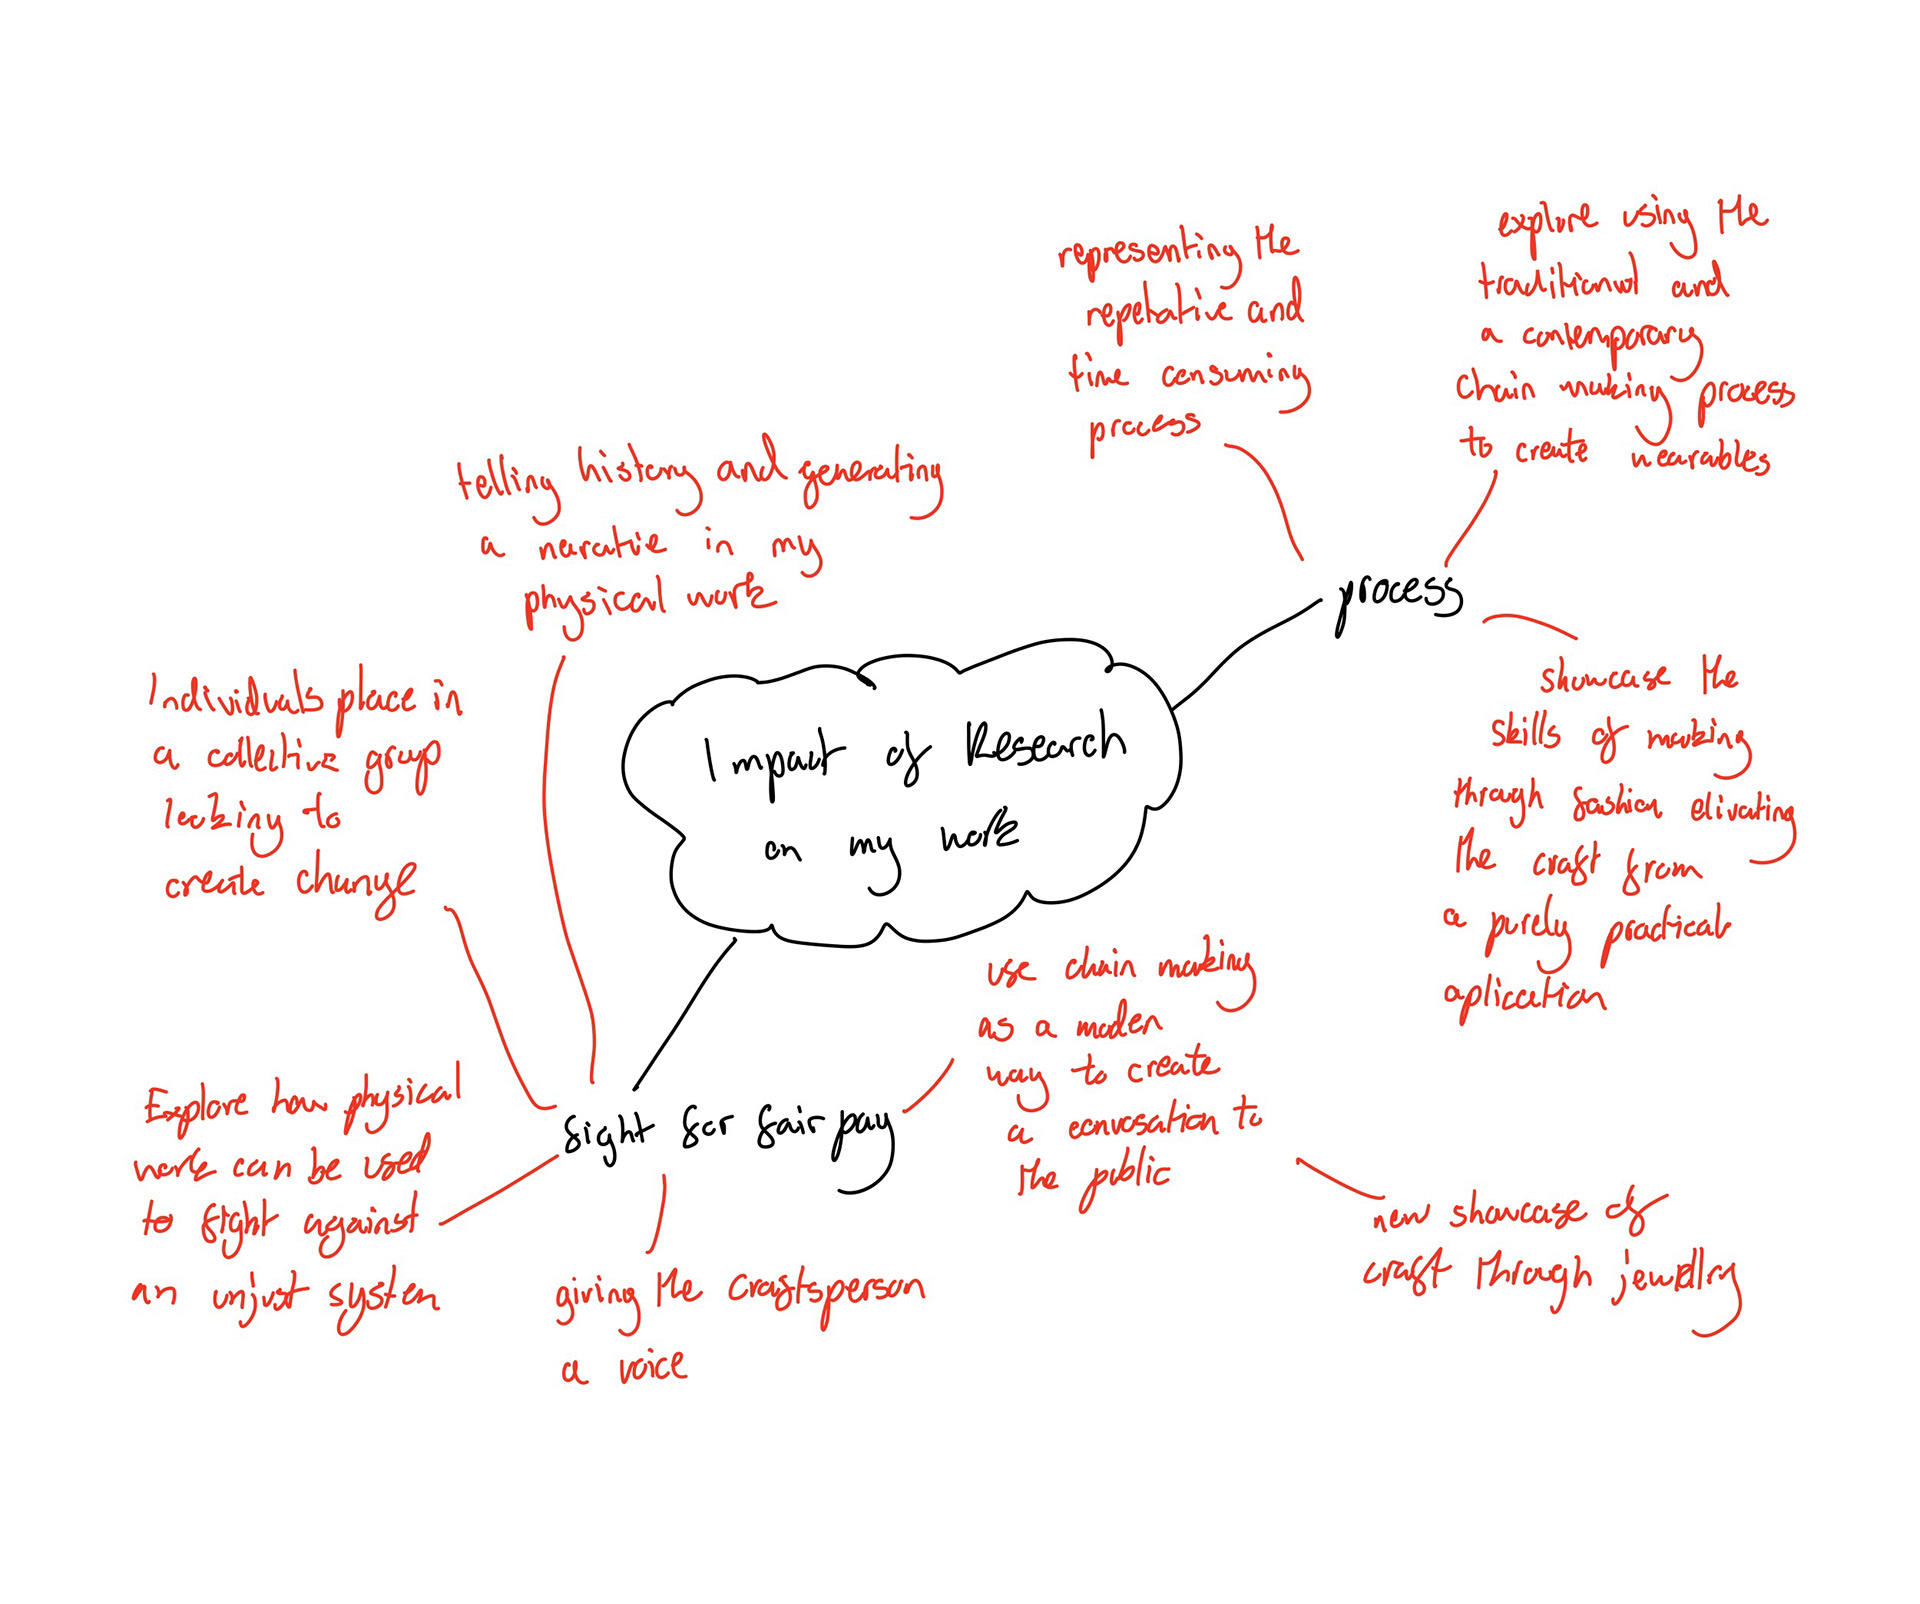 explore using the
traditional and
a contemporary
chain making process
to create wearables
representing the
repetative and
time consuming
process
telling history and generating
a narative in my
physical work
process
showcase the
skills of making
through fashion elivating
the craft from
a purely practical
aplication
Individuals place in
a collective group
looking to
create change
Impact of Research
on my work
use chain making
as a moden
way to create
a convosation to
the public
fight for fair pay
Explore how physical
work can be used
to fight against
an unjust system
giving the craftsperson
a voice
new showcase of
craft through jewellry